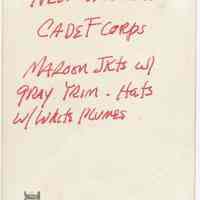 CADET CORPS
MAROON JKTS w/
GRAY TRIM - HATS
w/ WHITE PLUMES